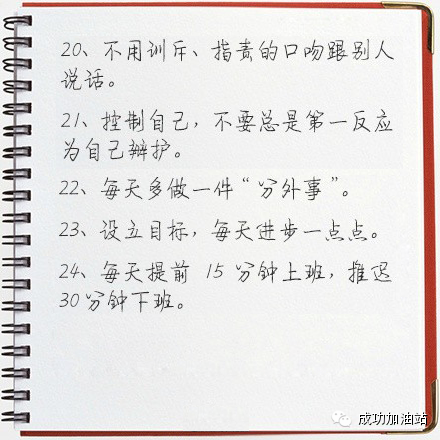 20、不用训斥、指责的口吻跟别人
说话。
21、控制自己，不要总是第一反应
为自己辩护。
22、每天多做一件“分外事”。
23、设立目标，每天进步一点点。
24、每天提前 15 分钟上班，推迟
30 分钟下班。
成功加油站